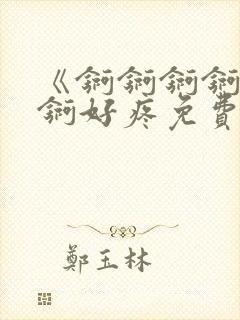 《锕锕锕锕
锕好疼免費
鄭玉林